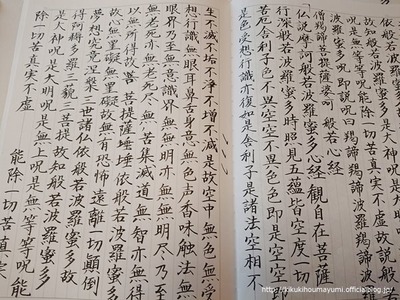 故知般若波羅蜜多是大神呪是大明
呪是無等等呪能除一切苦真実不虚故説般若
波羅蜜多呪即説呪曰羯諦羯諦波羅羯諦波
羅僧羯諦菩提薩婆訶 般若心経
仏説摩訶般若波羅蜜多心経 観自在菩薩
行深般若波羅蜜多時照見五蘊皆空度一切
苦厄舎利子色不異空空不異色色即是空空即
是色受想行識亦復如是舎利子是諸法空相不
生不滅不垢不浄不増不減是故空中無色無受
想行識無眼耳鼻舌身意無色声香味触法無
眼界乃至無意識界無無明亦無無明尽乃至
無老死亦無老死尽無苦集滅道無智亦無得
以無所得故菩提薩埵依般若波羅蜜多
故心無罣礙無罣礙故無有恐怖遠離一切顛倒
夢想究竟涅槃三世諸仏依般若波羅蜜多故
得阿耨多羅三藐三菩提故知般若波羅蜜多
是大神呪是大明呪是無上呪是無等等呪能
除一切苦真実不虚
能除一切苦真実
kikukihoumayumi.officialblog.jp/